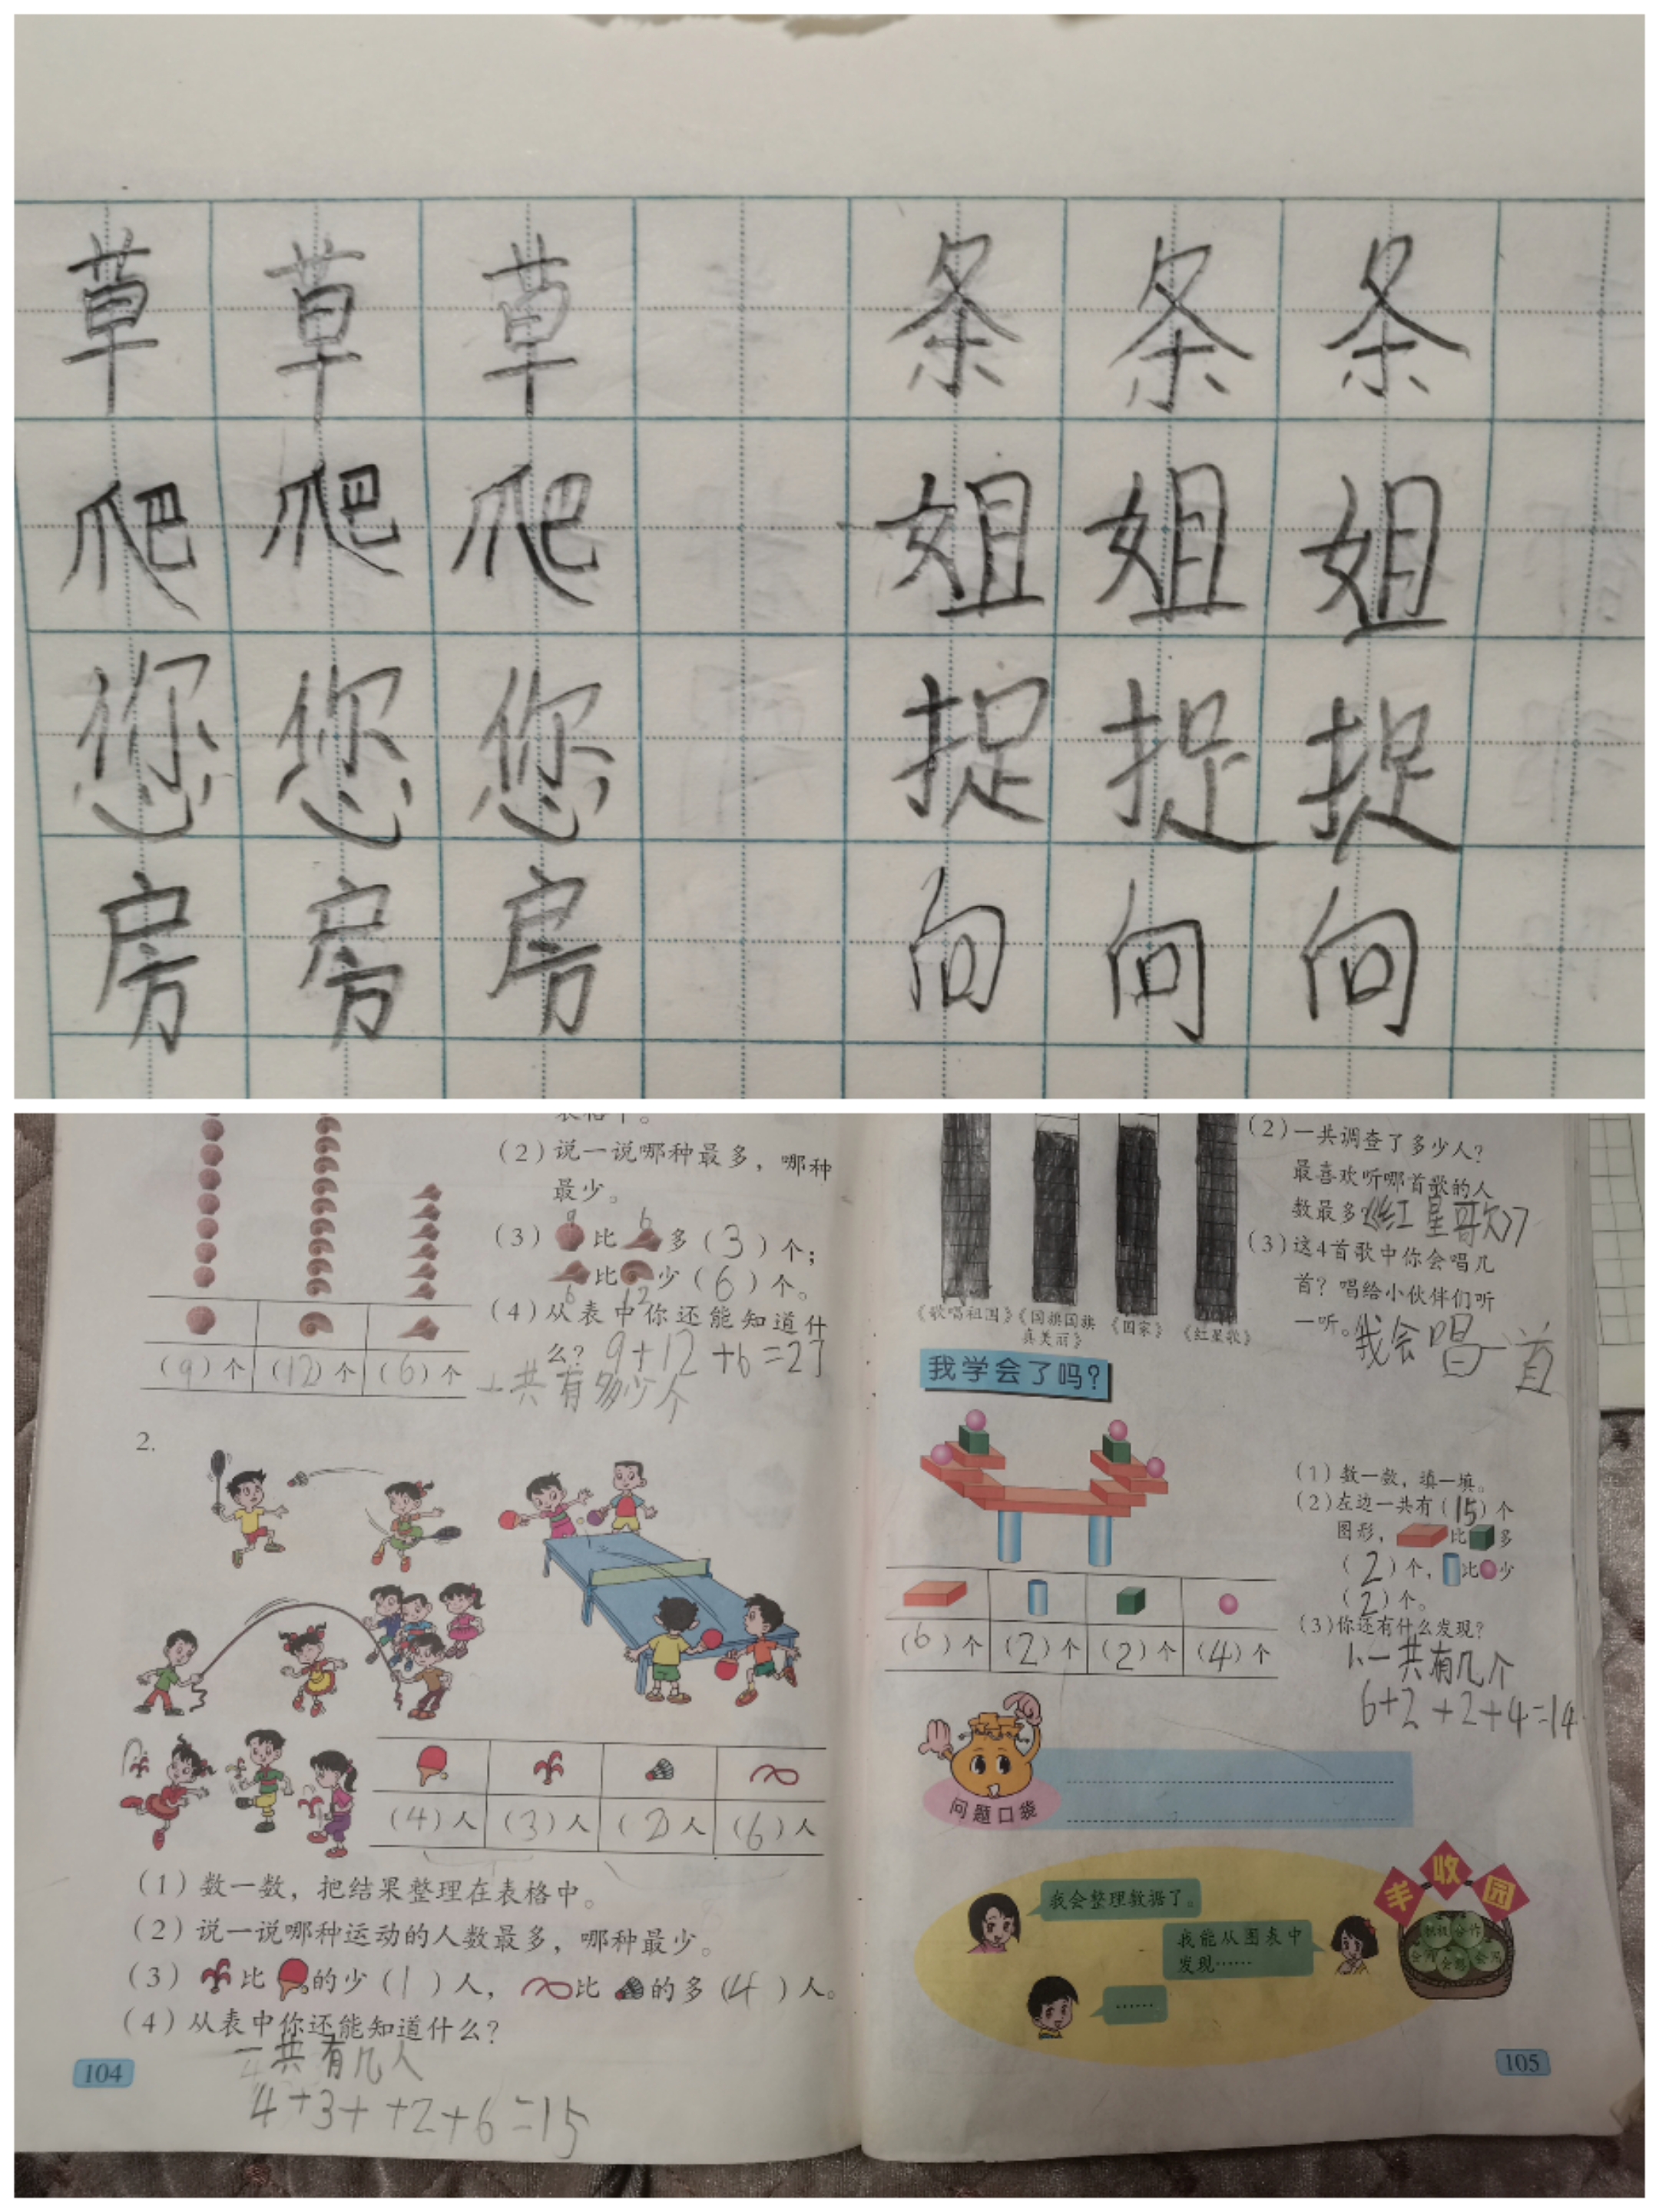 草 草 草 条 条 条
爬 爬 爬 姐 姐 姐
您 您 您 捉 捉 捉
房 房 房 向 向 向
(2)说一说哪种最多，哪种
最少。
9 6
(3) 比 多(3)个；
比 少(6)个。
6 12
(4)从表中你还能知道什
么？ 9+12+6=27
一共有多少个
(9)个 (12)个 (6)个
2.
(4)人 (3)人 (2)人 (6)人
(1)数一数，把结果整理在表格中。
(2)说一说哪种运动的人数最多，哪种最少。
(3) 比 的少(1)人， 比 的多(4)人。
(4)从表中你还能知道什么？
一共有几人
4+3++2+6=15
104
(2)一共调查了多少人？
最喜欢听哪首歌的人
数最多？《红星歌》
(3)这4首歌中你会唱几
首？唱给小伙伴们听
一听。我会唱一首
《歌唱祖国》《国旗国旗真美丽》《国家》《红星歌》
我学会了吗？
(1)数一数，填一填。
(2)左边一共有(15)个
图形， 比 多
(2)个， 比 少
(2)个。
(3)你还有什么发现？
1、一共有几个
6+2+2+4=14
(6)个 (2)个 (2)个 (4)个
问题口袋
丰收园
我会整理数据了。
我能从图表中
发现……
……
105